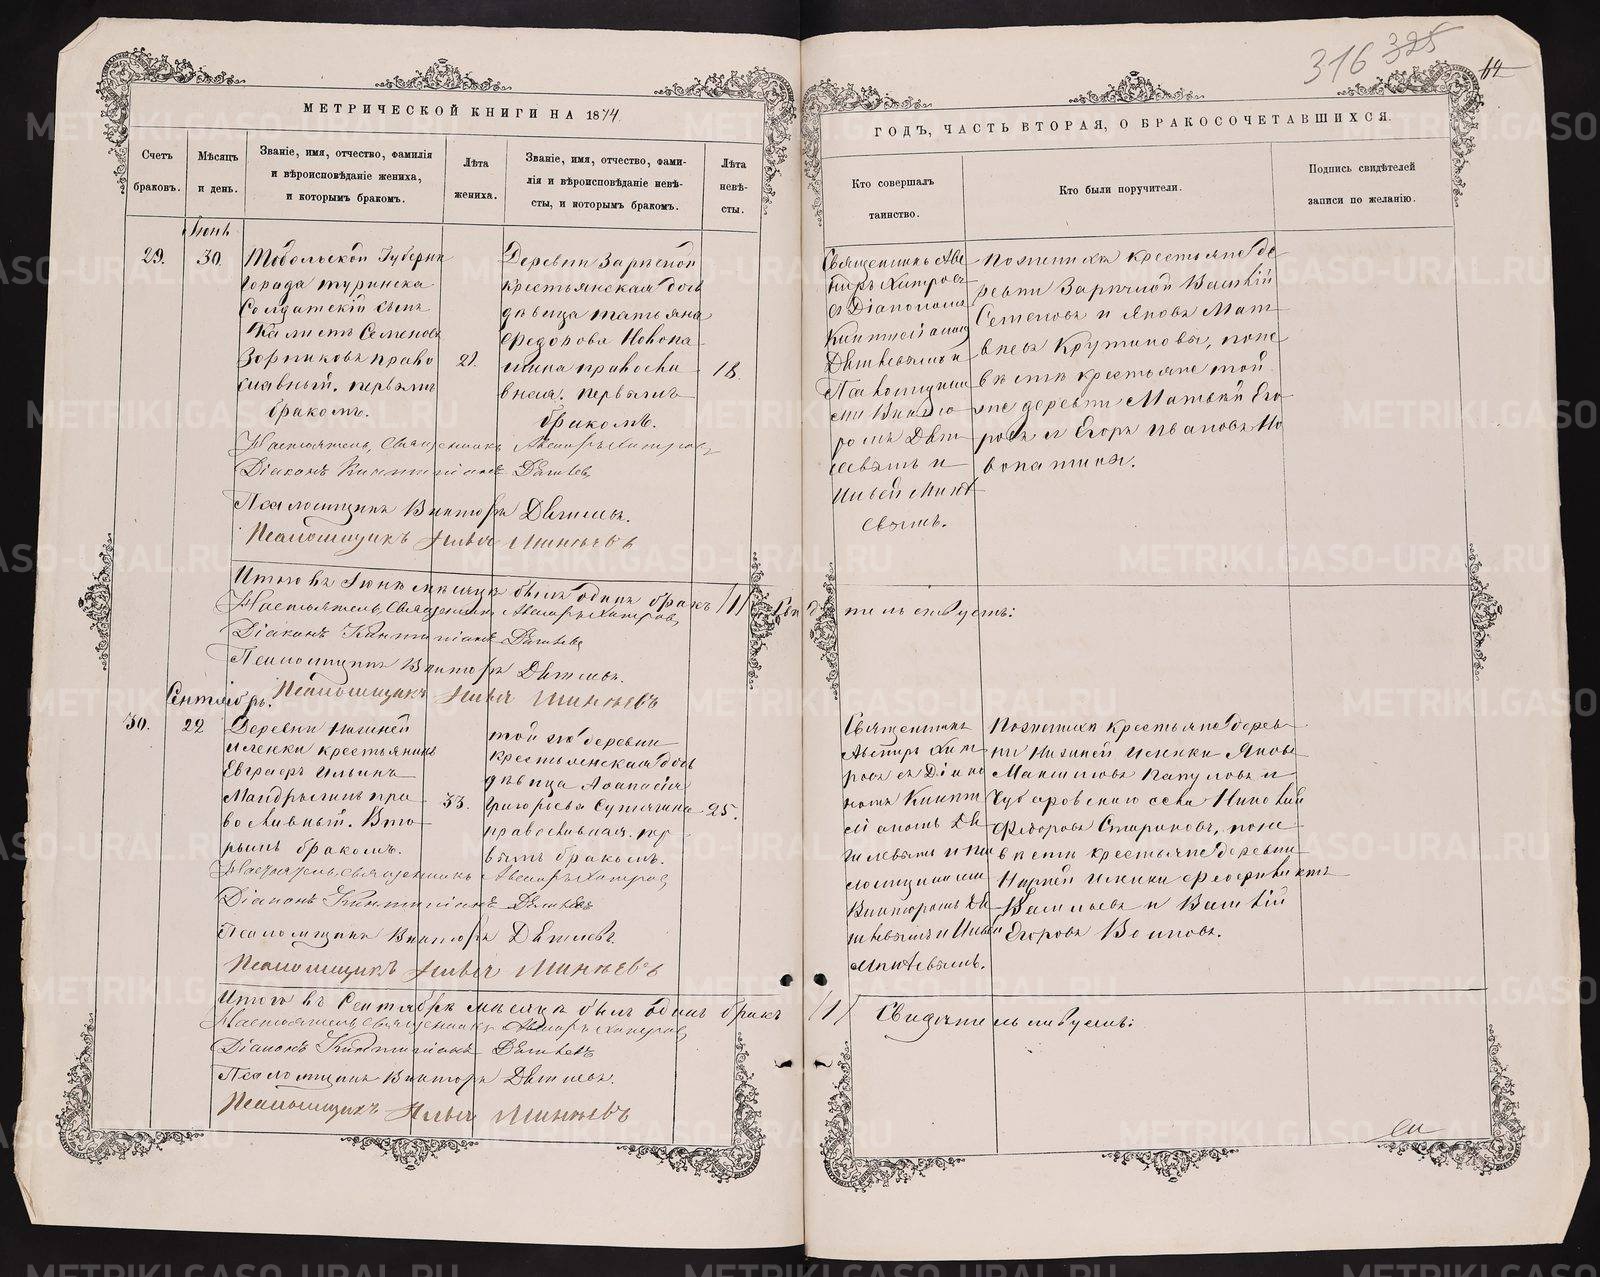 316 325
МЕТРИЧЕСКОЙ КНИГИ НА 1874
ГОДЪ, ЧАСТЬ ВТОРАЯ, О БРАКОСОЧЕТАВШИХСЯ.
Счетъ
браковъ.
Мѣсяцъ
и день.
Званіе, имя, отчество, фамилія
и вѣроисповѣданіе жениха,
и которымъ бракомъ.
Лѣта
жениха.
Званіе, имя, отчество, фами-
лія и вѣроисповѣданіе невѣ-
сты, и которымъ бракомъ.
Лѣта
невѣ-
сты.
Кто совершалъ
таинство.
Кто были поручители.
Подпись свидѣтелей
записи по желанію.
Іюнь
29.
30.
Тобольской Губерніи
города Туринска
Солдатскій сынъ
Калистъ Семеновъ
Зорниковъ право
славный. первымъ
бракомъ.
21.
Деревни Зарѣчной
крестьянская дочь
дѣвица Татьяна
Федорова Новопа
шина правосла
вная. первымъ
бракомъ.
18.
Священникъ Аве
ниръ Хитровъ
съ Діакономъ
Дѣтлевымъ и
Псаломщика
ми Викто
ромъ Дѣт
левымъ и
Ильей Минѣ
евымъ.
По женихѣ крестьяне де
ревни Заречной Василій
Семеновъ и Яковъ Мат
вѣевъ Крутиковы, поне
вѣстѣ крестьяне той
же деревни Матвѣй Его
ровъ и Егоръ Ивановъ Но
вопашины.
Настоятель, Священникъ Авениръ Хитровъ
Діаконъ Кинтиліанъ Дѣтлевъ
Псаломщикъ Викторъ Дѣтлевъ.
Псаломщикъ Илья Минѣевъ
Итого въ Іюнѣ мѣсяцѣ былъ одинъ бракъ /1/ Свидѣтельствуемъ:
Настоятель, Священникъ Авениръ Хитровъ
Діаконъ Кинтиліанъ Дѣтлевъ
Псаломщикъ Викторъ Дѣтлевъ.
Псаломщикъ Илья Минѣевъ
Сентябрь.
30.
22
Деревни Нижней
Иленки крестьянинъ
Евграфъ Ильинъ
Мандрыгинъ пра
вославный. Вто
рымъ бракомъ.
33.
той же деревни
крестьянская дочь
дѣвица Афанасія
Григорьева Сутягина
православная. пер
вымъ бракомъ.
25.
Священникъ
Авениръ Хит
ровъ съ Діако
номъ Кинти
ліаномъ Дѣ
тлевымъ и пса
ломщиками
Викторомъ Дѣ
тлевымъ и Ильей
Минѣевымъ.
По женихѣ крестьяне дерев
ни Нижней Иленки Яковъ
Максимовъ Папуловъ и
Чубаровскаго села Николай
Федоровъ Стариковъ, поне
вѣстѣ крестьяне деревни
Нижней Иленки Феофилактъ
Васильевъ и Василій
Егоровъ Воиновы.
Настоятель, Священникъ Авениръ Хитровъ
Діаконъ Кинтиліанъ Дѣтлевъ
Псаломщикъ Викторъ Дѣтлевъ.
Псаломщикъ Илья Минѣевъ
Итого въ Сентябрѣ мѣсяцѣ былъ одинъ бракъ /1/ Свидѣтельствуемъ:
Настоятель Священникъ Авениръ Хитровъ
Діаконъ Кинтиліанъ Дѣтлевъ
Псаломщикъ Викторъ Дѣтлевъ.
Псаломщикъ Илья Минѣевъ
METRIKI.GASO-URAL.RU